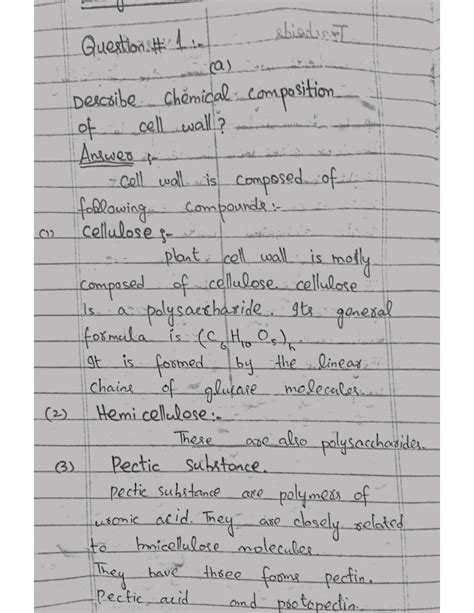 Question # 1 :-
(a)
Describe Chemical composition
of cell wall ?
Answer :-
- Cell wall is composed of
following compounds :-
(1) Cellulose :-
plant cell wall is motly
composed of cellulose. cellulose
is a polysaccharide. Its general
formula is (C6H10O5)n
It is formed by the linear
chains of glucose molecules.
(2) Hemicellulose :-
These are also polysaccharides.
(3) Pectic substance.
Pectic substance are polymers of
uronic acid. They are closely related
to hmicellulose molecules
They have three forms pectin.
Pectic acid and protopectin.